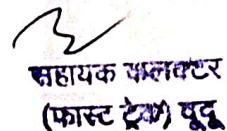 सहायक कलक्टर
(फास्ट ट्रेक) दूदू